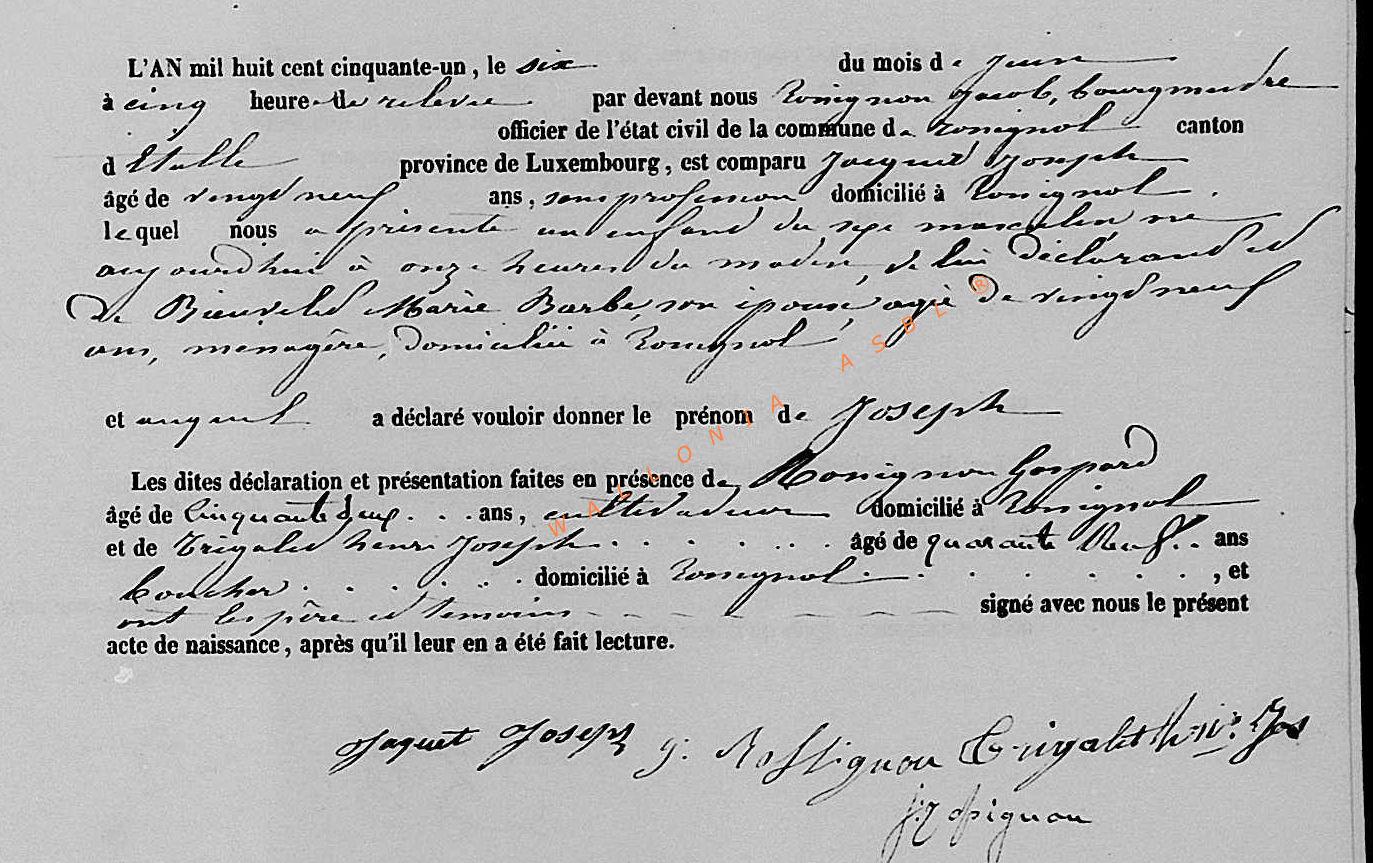 L'AN mil huit cent cinquante-un, le six du mois de juin
à cinq heures de relevée par devant nous Rossignon Jacob, bourgmestre
officier de l'état civil de la commune de Rossignol canton
d'Etalle province de Luxembourg, est comparu Jacquet Joseph
âgé de vingt neuf ans, sans profession domicilié à Rossignol.
lequel nous a présenté un enfant du sexe masculin né
aujourdhui à onze heures du matin, de lui déclarant et
de Marie Barbe, son épouse agée de vingt neuf
ans, menagère, domiciliée à Rossignol
et auquel a déclaré vouloir donner le prénom de Joseph
Les dites déclaration et présentation faites en présence de Rossignon Gaspard
âgé de Cinquante deux . . . ans, cultivateur domicilié à Rossignol
et de Trigalet henri Joseph . . . . . . . âgé de quarante Neuf . . ans
boucher . . . . . . . domicilié à Rossignol . . . . . . . , et
ont les père et temoins signé avec nous le présent
acte de naissance, après qu'il leur en a été fait lecture.
Jaquet Joseph g: Rossignon Trigalet Jos
WALLONIA ASBL ®